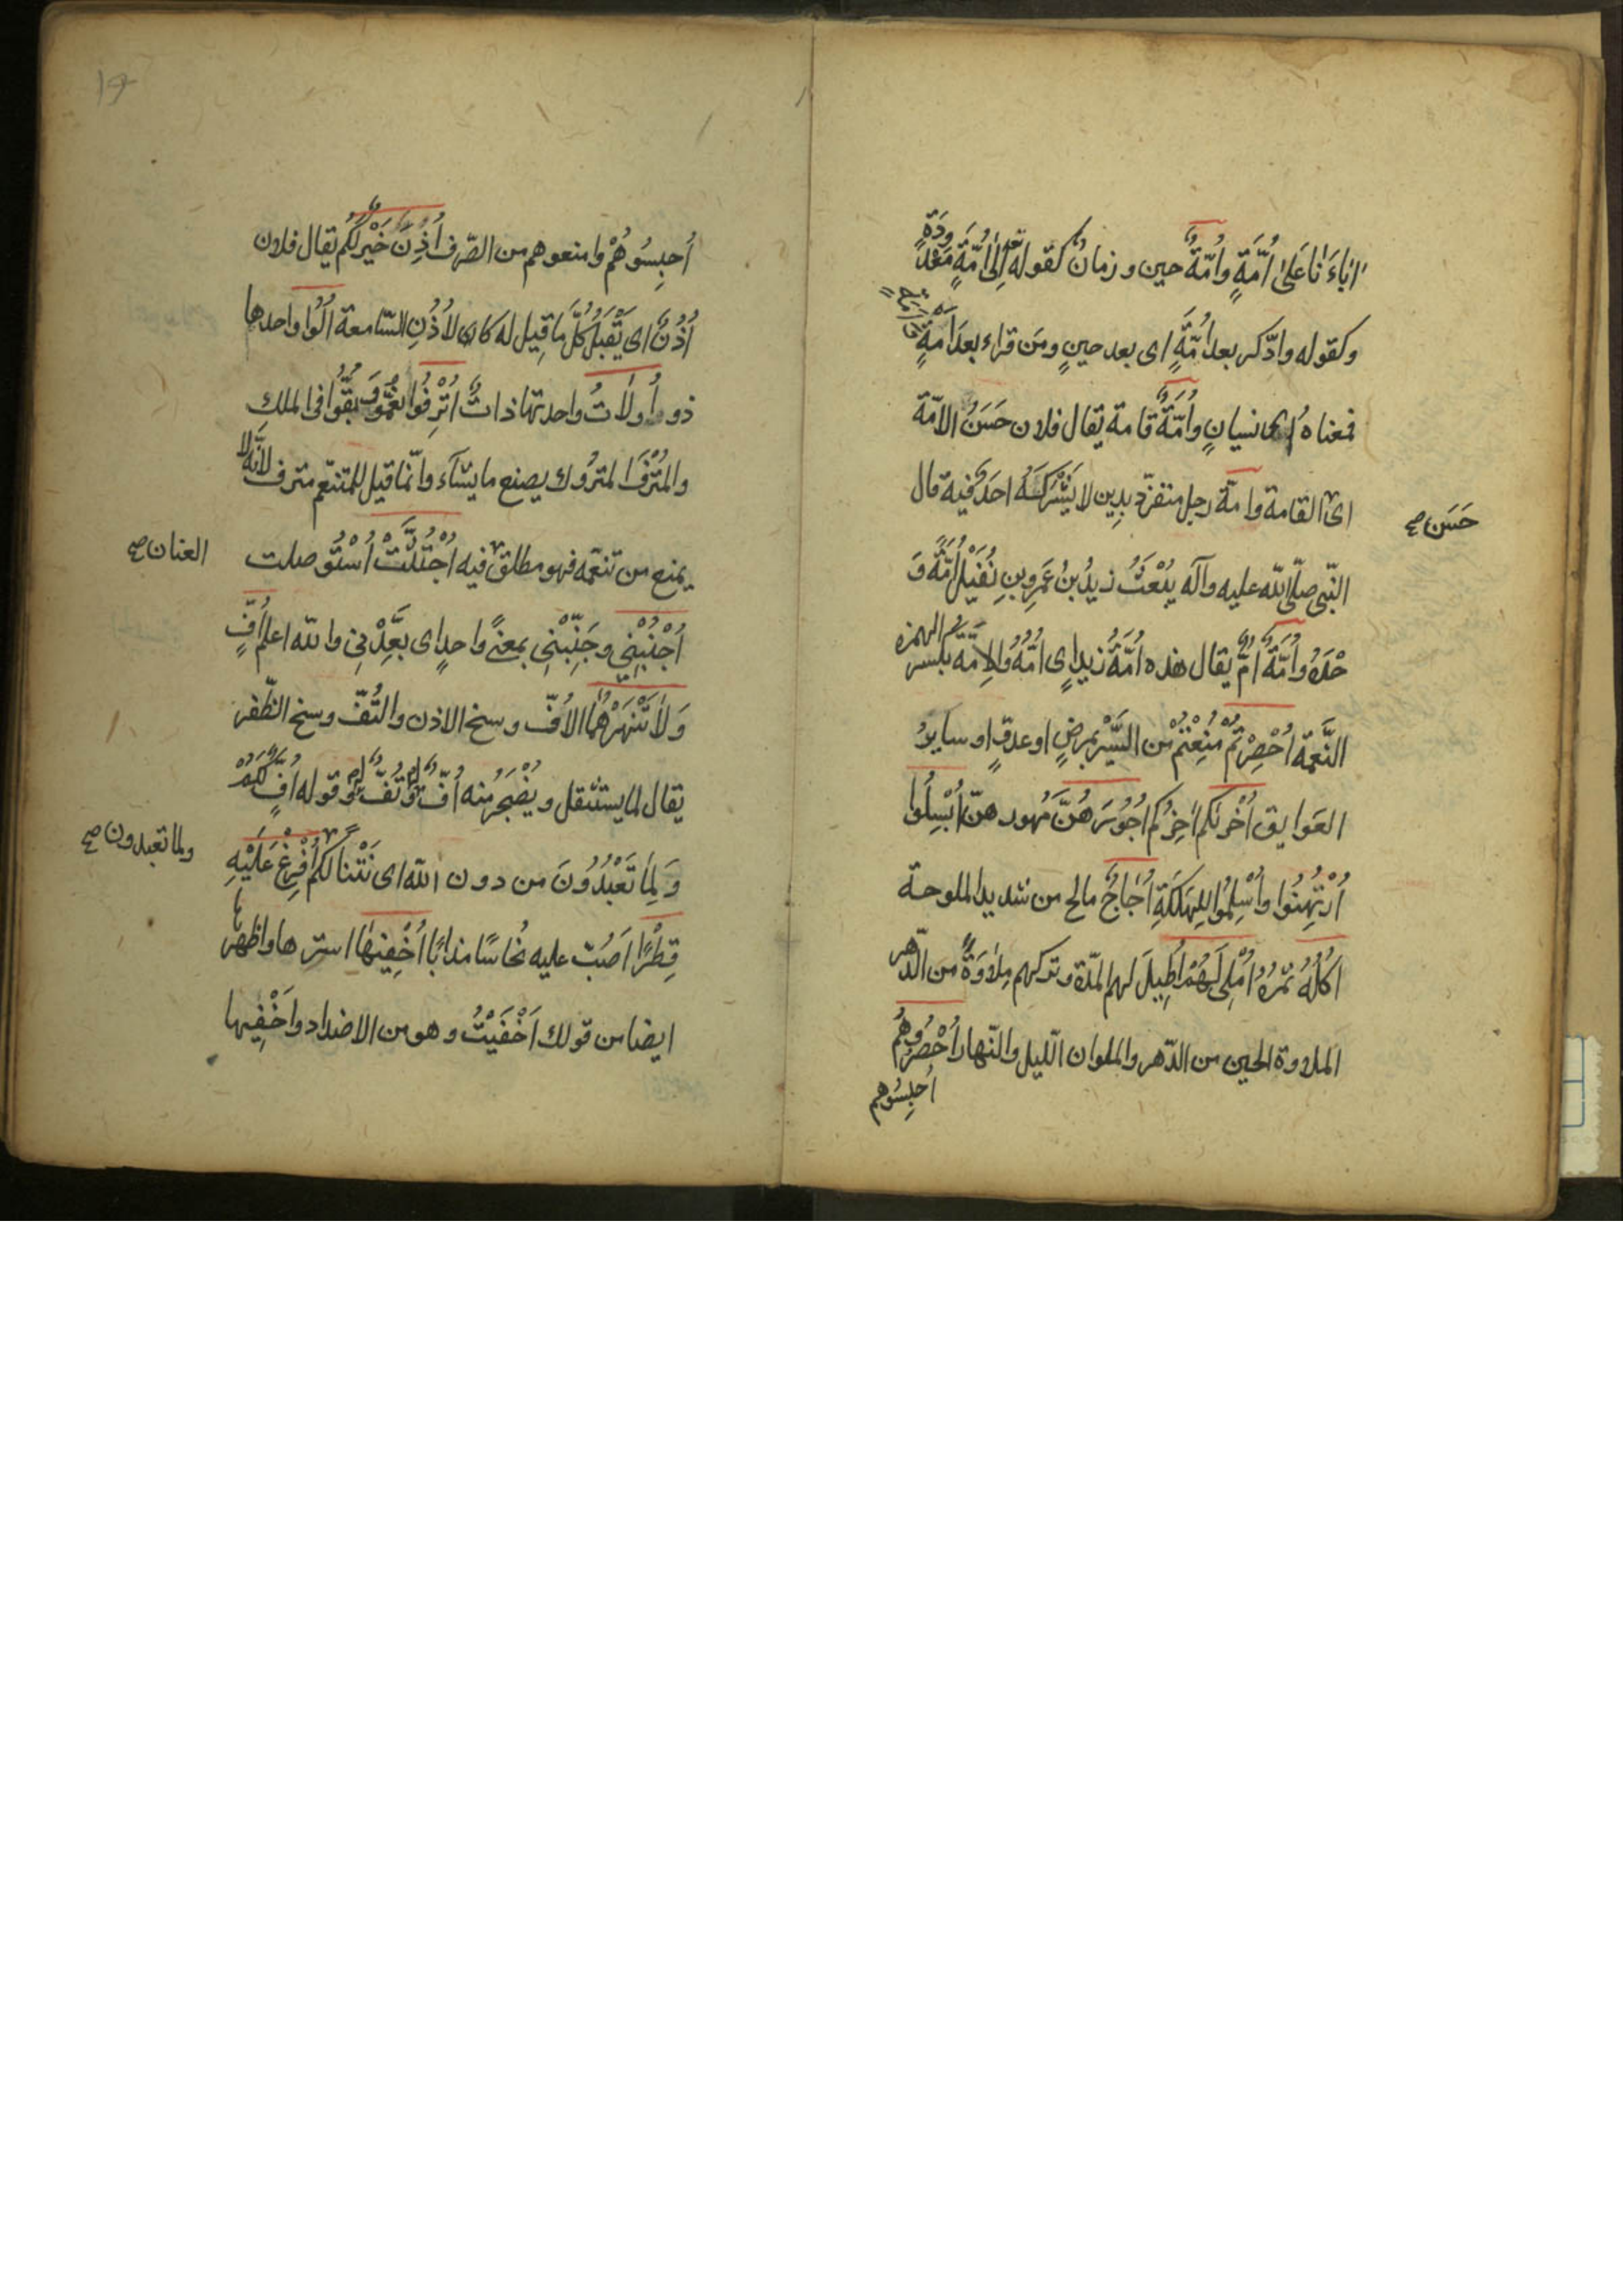 اٰبَاءَنَا عَلىٰ اُمَّةٍ وَاُمَّةٌ حين و زمانٌ كقوله تعالى اِلىٰ اُمَّةٍ مَعْدُودَةٍ
وكقوله وادّكر بعد اُمَّةٍ اى بعد حينٍ ومَن قراء بعدَ اَمَةٍ
فمعناه اى نسيانٍ وَاُمَّةٌ قامة يقال فلان حَسَنُ الامّة
اى القامة وامة رجل متفرّد بدِين لا يَشْرَكَهُ احَدٌ فيه قال
حَسَن صح
النّبى صلّى اللّه عليه وآله يُبْعَثُ زيدُ بنُ عَمَرِو بنِ نُفَيْلٍ اُمّةً وَ
حْدَهُ وَاُمَّةٌ اُمٌّ يقال هذه اُمَّةُ زيدٍ اى اُمُّهُ وَالاِمّة بكسر الهمزه
النَّعمَة اُحْصِرْتُمْ مُنِعْتمْ من السَّيْر بمرضٍ او عدوٍّ او سايرُ
العَوايق اُخْرٰيكُم اٰخِرُكم اُجُوُرَهُنَّ مُهُورهنّ اُبْسِلُوا
اُرْتُهِنُوا واُسْلِمُوا لِلهَلَكَةِ اُجَاجٌ مالح من شديد الملوحة
اُكُلُهُ ثمَرُهُ اُمْلِى لَهُمْ اُطِيلَ لهم المدّة وتركهم مِلاوَةً من الدّهر
الملاوة الحين من الدّهر والملوان اللّيل والنّهار اُحْصُروُهُم
اُحبِسُوهم
اُحبِسُوهُمْ وامنعوهم من الصّرف اُذُنُ خَيْرٍ لكُم يقال فلان
اُذُنٌ اى يَقْبَلُ كُلَّ ما قِيل له كان الاُذُنِ السّامعة اُلُوا واحدها
ذو واُولاٰتُ واحدتها ذاتُ اُتْرِفُوا نُعِّمُوا وَ بُقُّوُا فى الملك
والمُتْرَفُ المتروُك يصنع ما يشآء وانّما قيل للمتنعّم مترف لانّه لا
يمنع من تنعّمه فهو مطلق فيه اُجْتُثَّتْ اُسْتُوصلت
العنان صح
اُجْنُبْنِى وجَنِّبْنِى بمعنىً واحدٍ اى بَعِّدْنِى واللّه اعلم اُفٍّ
وَلاٰ تَنْهَرْهُما الاُفّ وسخ الاذن والتُفّ وسخ الظّفر
يقال لما يستثقل ويُضْجَرُ منه اُفّ وَتُفّ وَ قوله اُفٍّ لَكُمْ
وَلِما تَعْبُدُونَ من دون اللّه اى نَتْناً لكم اُفْرِغْ عَلَيْهِ
ولما تعبدون صح
قِطْرًا اَصُبّ عليه نُحاسًا مذابًا اُخْفِيْهَا استرها واظهرها
ايضا من قولك اَخْفَيْتُ وهو من الاضداد واَخْفِيها